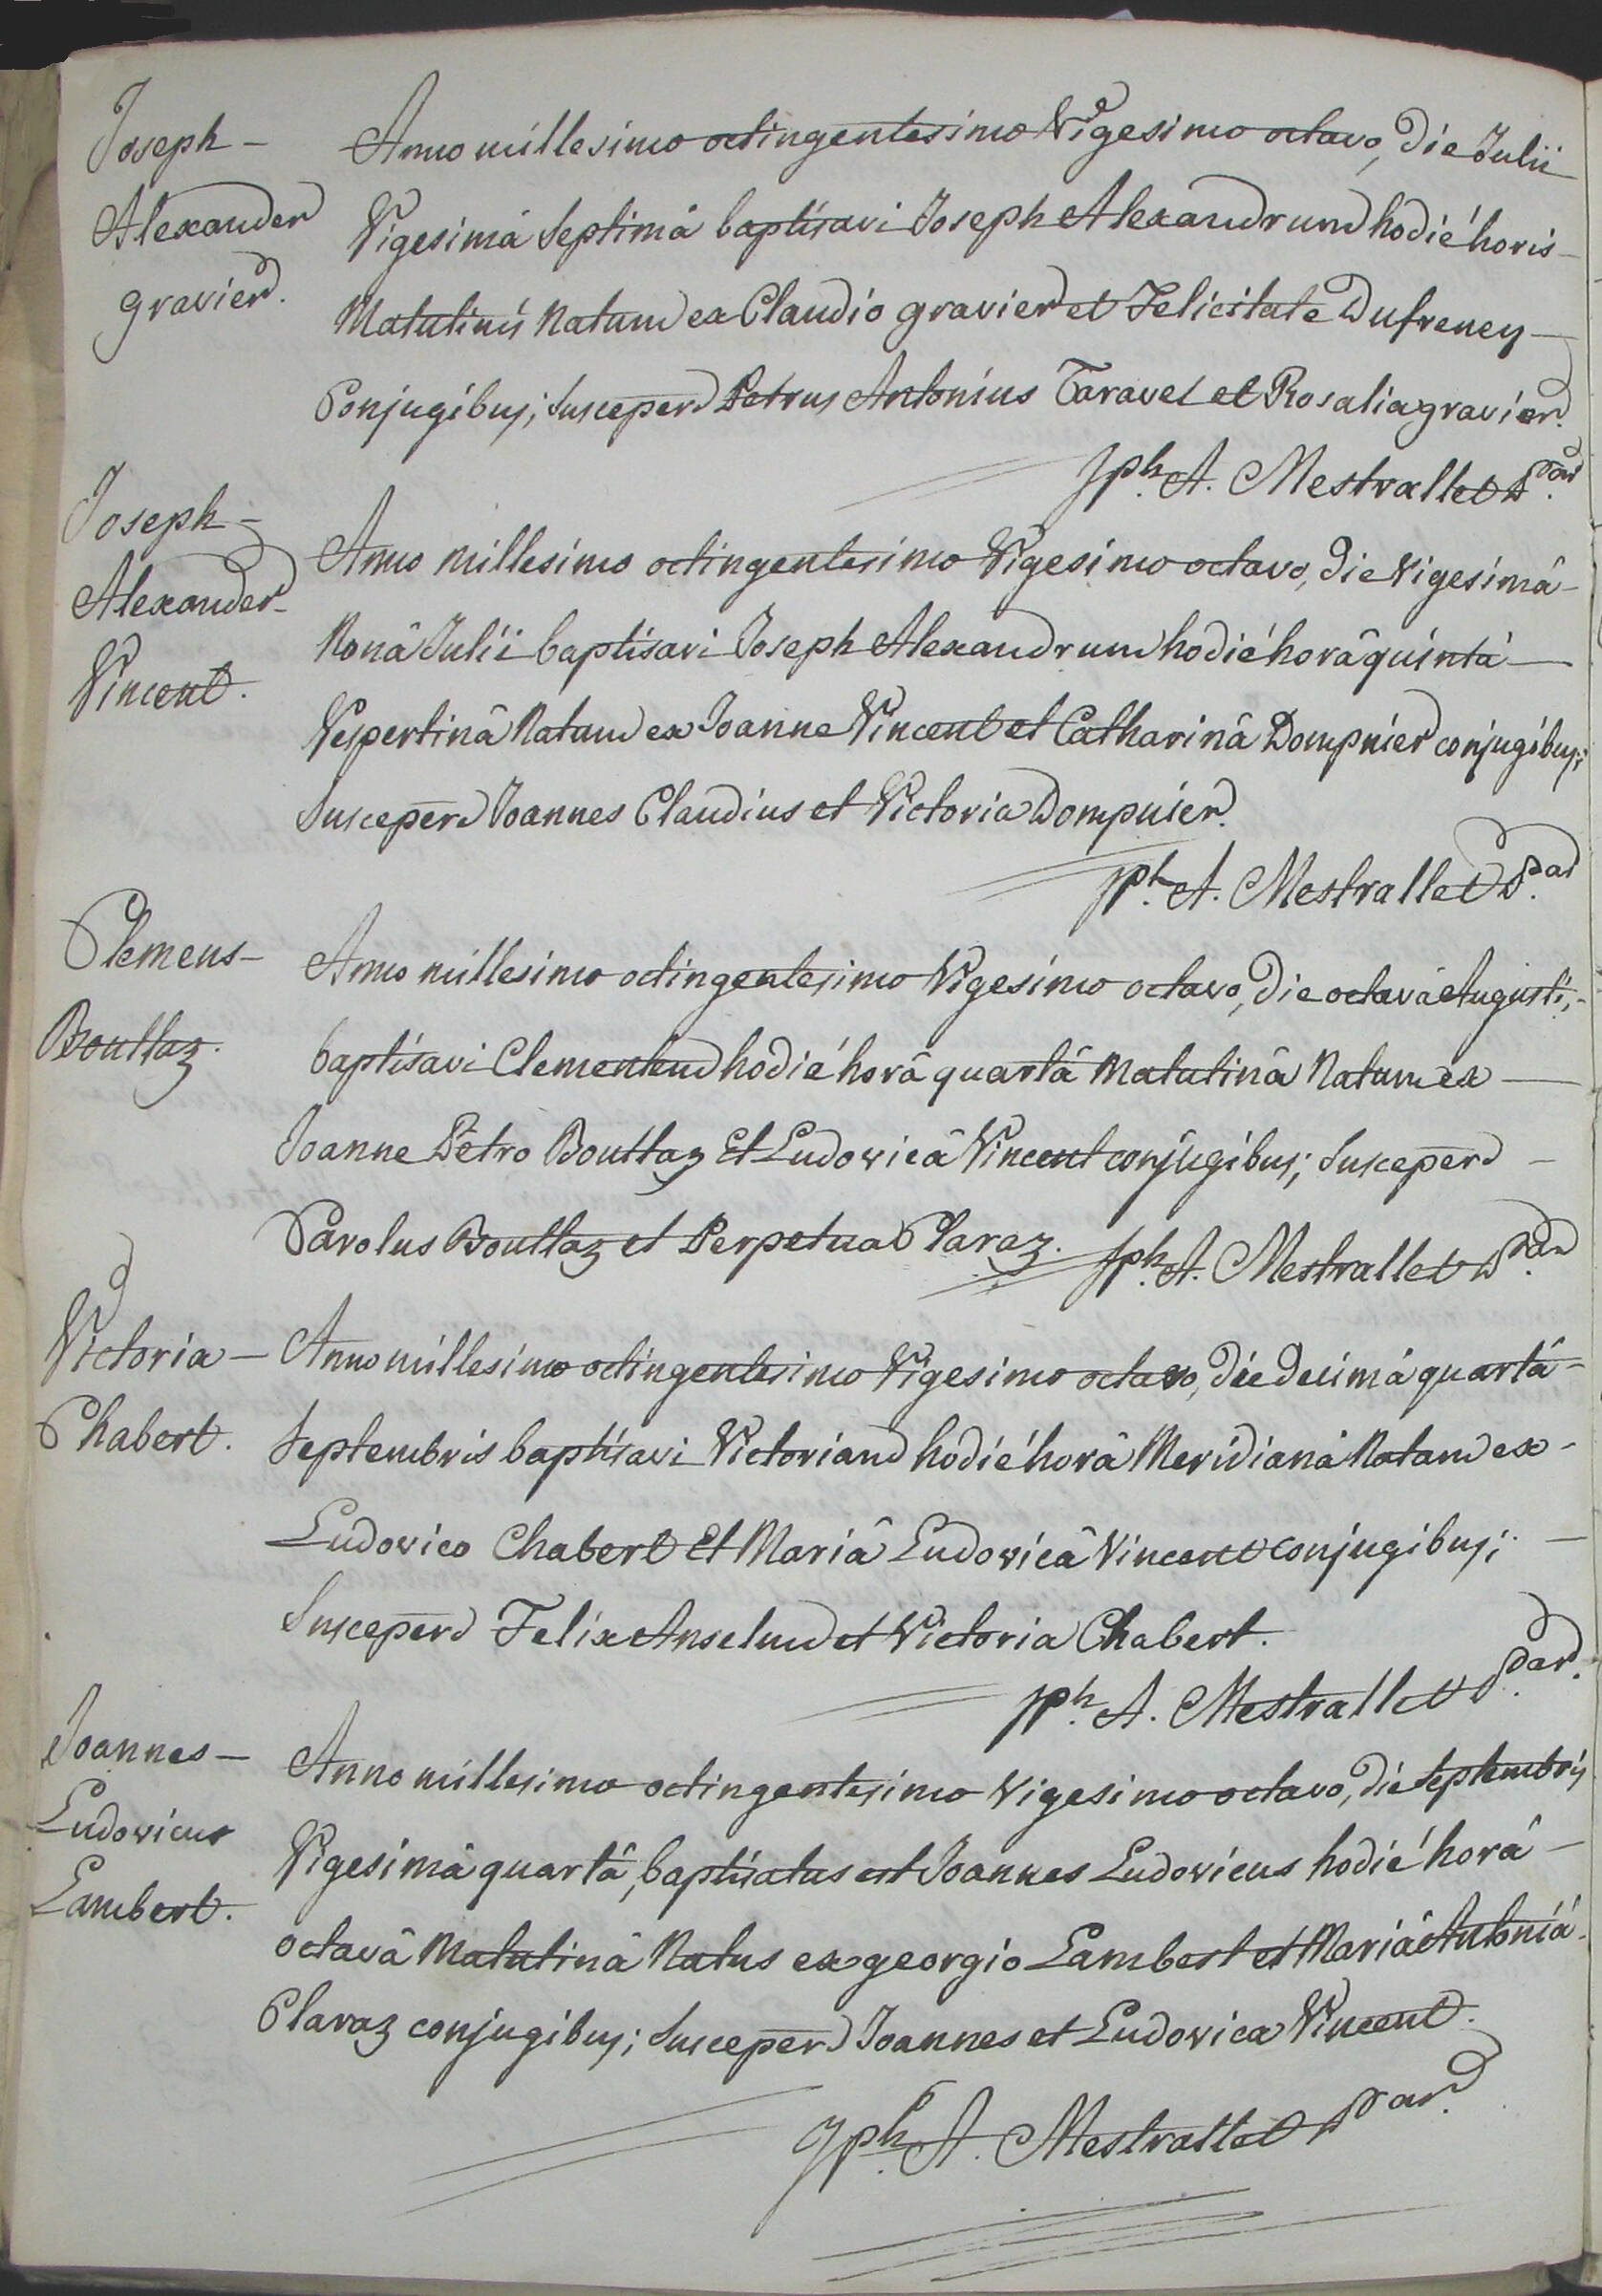 Joseph –
Alexander
gravier.
Anno millesimo octingentesimo Vigesimo octavo, die Julii
Vigesimâ Septimâ baptisavi Joseph Alexandrum hodiè horis –
Matutinis Natum ex Claudio gravier et Felicitate Dufreney –
Conjugibus; Susceper. Petrus Antonius Taravel et Rosalia gravier.
Jph. A. Mestrallet
Joseph –
Alexander –
Vincent.
Anno millesimo octingentesimo Vigesimo octavo, die Vigesimâ –
Nonâ Julii baptisavi Joseph Alexandrum hodiè horâ quintâ –
Vespertinâ Natum ex Joanne Vincent et Catharinâ Dompnier conjugibus;
Susceper. Joannes Claudius et Victoria Dompnier.
Jph. A. Mestrallet
Clemens –
Bouttaz.
Anno millesimo octingentesimo Vigesimo octavo, die octavâ Augusti, –
baptisavi Clementem hodiè horâ quartâ Matutinâ Natum ex –
Joanne Petro Bouttaz Et Ludovicâ Vincent conjugibus; Susceper. –
Carolus Bouttaz et Perpetua Claraz. Jph. A. Mestrallet
Victoria –
Chabert.
Anno millesimo octingentesimo Vigesimo octavo, die decimâ quartâ –
Septembris baptisavi Victoriam hodiè horâ Meridianâ Natam ex –
Ludovico Chabert Et Mariâ Ludovicâ Vincent conjugibus; –
Susceper. Felix Anselme et Victoria Chabert.
Jph. A. Mestrallet
Joannes –
Ludovicus
Lambert.
Anno millesimo octingentesimo Vigesimo octavo, die Septembris
Vigesimâ quartâ, baptisatus est Joannes Ludovicus hodiè horâ –
octavâ Matutinâ Natus ex georgio Lambert et Mariâ Antoniâ
Claraz conjugibus; Susceper. Joannes et Ludovica Vincent.
Jph. A. Mestrallet